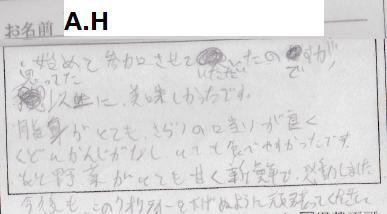 お名前 A.H
始めて参加させていただいたのですが、
思ってた
以上に、美味しかったです。
脂身がとても、さらりの口当りが良く
くどいかんじがなく、とても食べやすかったです。
野菜がとても甘く新鮮で、感動しました
今後も このクオリティーを下げぬように頑張ってください